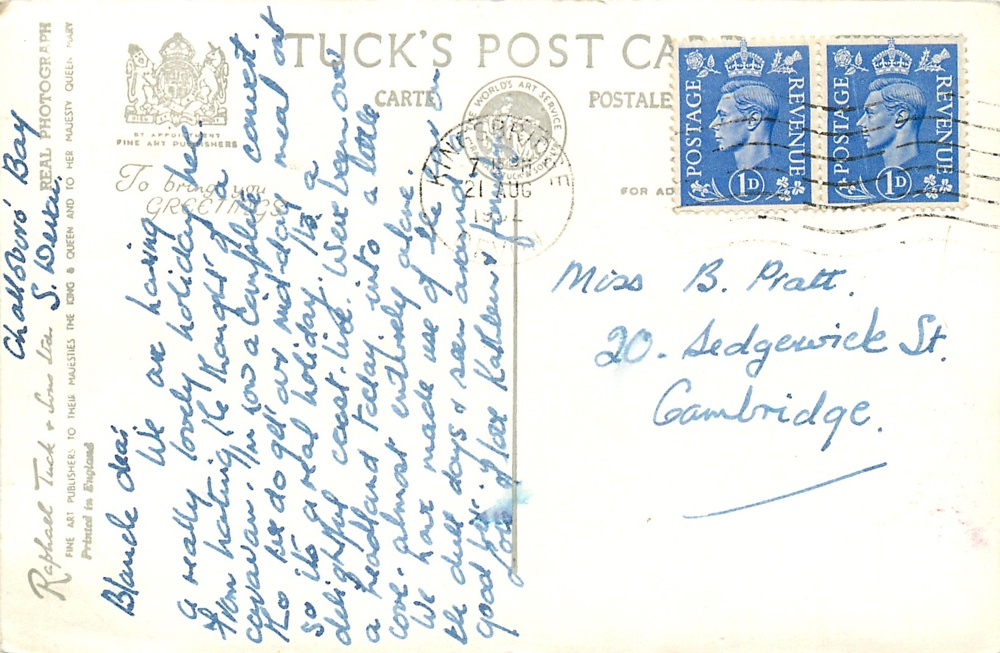 TUCK'S POST CARD
CARTE
POSTALE
BY APPOINTMENT
FINE ART PUBLISHERS
To bring you
GREETINGS
THE WORLD'S ART SERVICE
TUCK & SONS
FOR AD
KINGSBRIDGE
21 AUG
POSTAGE
REVENUE
1D
POSTAGE
REVENUE
1D
Raphael Tuck & Sons Ltd.
REAL PHOTOGRAPH
FINE ART PUBLISHERS TO THEIR MAJESTIES THE KING & QUEEN AND TO HER MAJESTY QUEEN MARY
Printed in England
Challoboro' Bay
S. Devon.
Blanche dear
We are having
a really lovely holiday here.
From hating the thought of a
caravan. I'm now a complete convert.
too we do get our mid-day meal out
so it's a real holiday. It's a
delightful coast line. We've been over
a headland today into a little
cove. almost entirely alone.
We have made use of the car on
the dull days & seen around a
good bit. Jim
love Kathleen &
Miss B. Pratt.
20. Sedgewick St.
Cambridge.